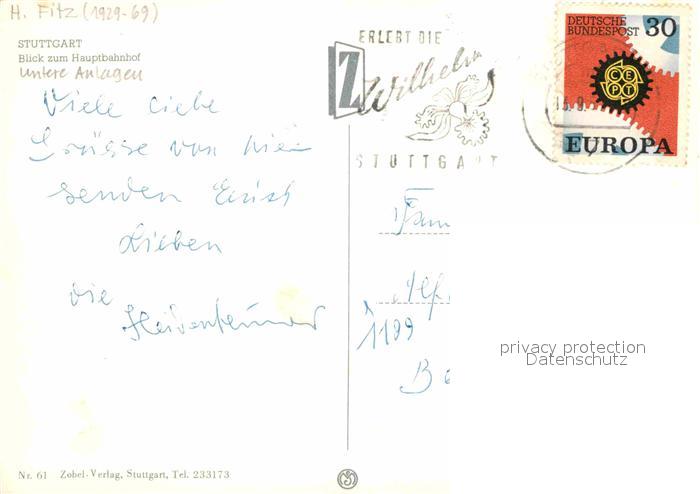 H. Fitz (1929-69)
STUTTGART
Blick zum Hauptbahnhof
Untere Anlagen
Viele liebe
Grüsse von hier
senden Euch
Lieben
die Heidenheimer
ERLEBT DIE
Z Wilhelma
STUTTGART
DEUTSCHE
BUNDESPOST 30
CEPT
EUROPA
Fam
Alf.
1199
B
privacy protection
Datenschutz
Nr. 61 Zobel-Verlag, Stuttgart, Tel. 233173